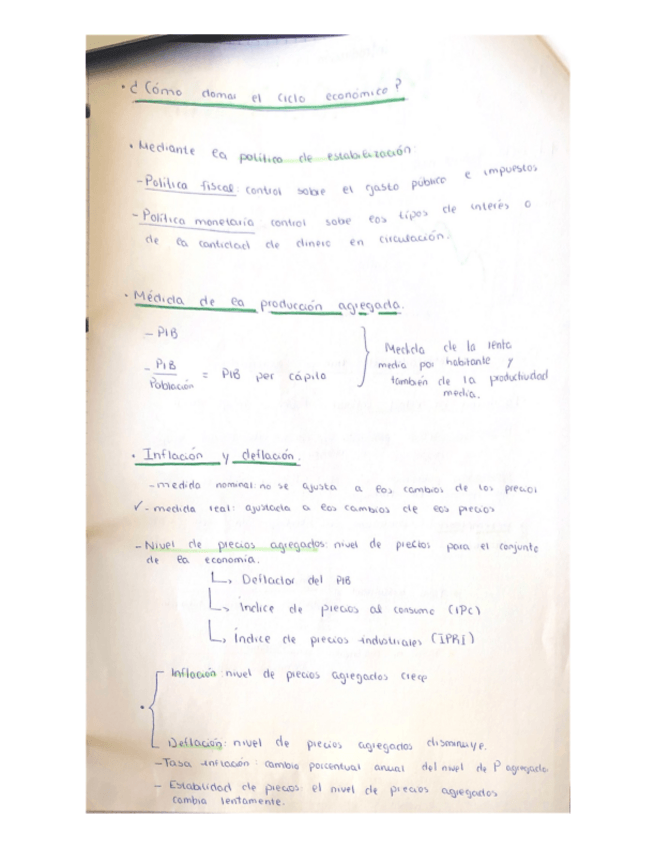 • ¿Cómo domar el ciclo económico?
• Mediante la política de estabilización:
- Política fiscal: control sobre el gasto público e impuestos
- Política monetaria: control sobe los tipos de interés o
de la cantidad de dinero en circulación.
• Medida de la producción agregada.
- PIB
- PIB / Población = PIB per cápita
} Medida de la renta
media por habitante y
también de la productividad
media.
• Inflación y deflación.
- medida nominal: no se ajusta a los cambios de los precios
✓ - medida real: ajustada a los cambios de los precios
- Nivel de precios agregados: nivel de precios para el conjunto
de la economía.
↳ Deflactor del PIB
↳ índice de precios al consumo (IPC)
↳ Índice de precios industriales (IPRI)
Inflación: nivel de precios agregados crece
•
Deflación: nivel de precios agregados disminuye.
- Tasa inflación: cambio porcentual anual del nivel de P agregado
- Estabilidad de precios: el nivel de precios agregados
cambia lentamente.